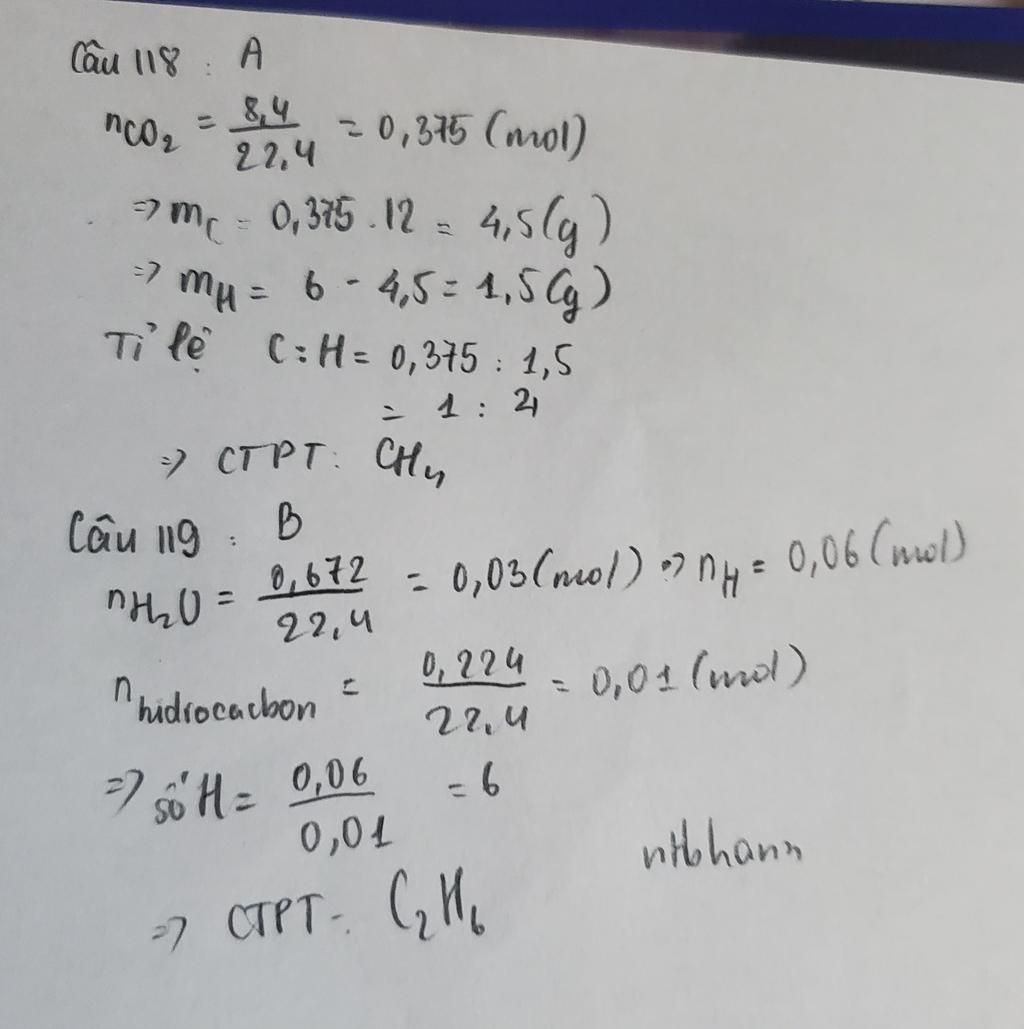 Câu 118 : A
nCO₂ = 8,4/22,4 = 0,375 (mol)
=> mC = 0,375 . 12 = 4,5 (g)
=> mH = 6 - 4,5 = 1,5 (g)
Tỉ lệ C : H = 0,375 : 1,5
= 1 : 4
=> CTPT : CH₄
Câu 119 : B
nH₂O = 0,672/22,4 = 0,03 (mol) => nH = 0,06 (mol)
n hidrocacbon = 0,224/22,4 = 0,01 (mol)
=> số H = 0,06/0,01 = 6
=> CTPT : C₂H₆